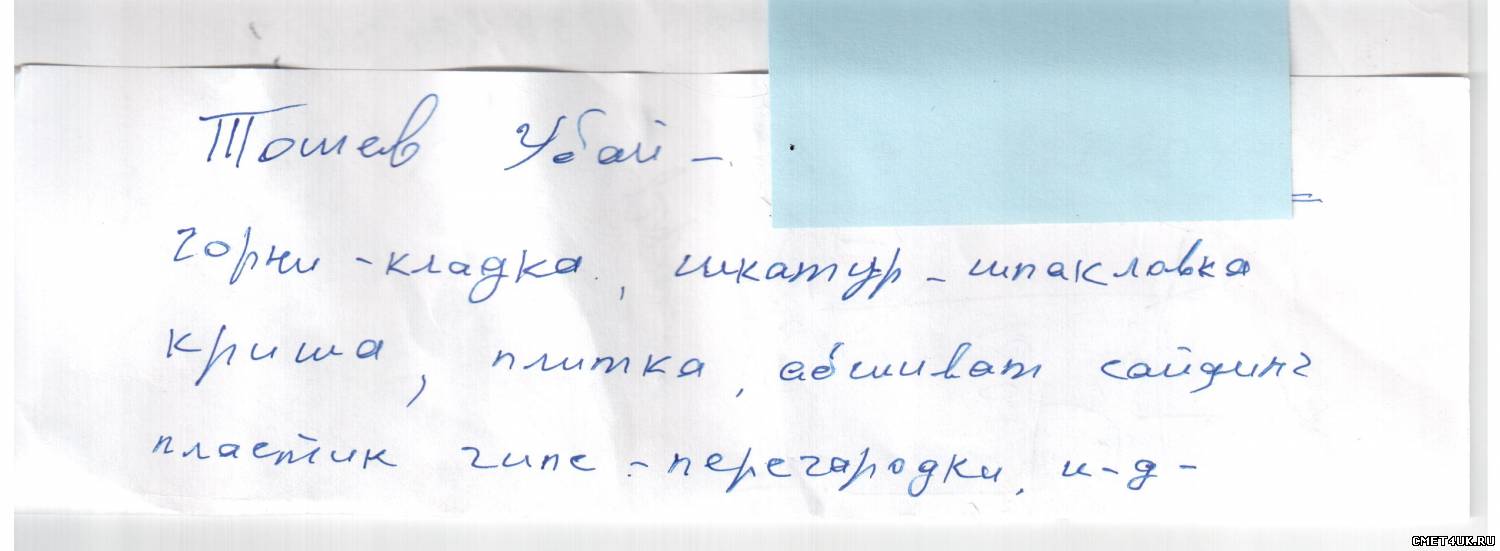 Тошев Убай -
горни - кладка, шкатур - шпакловка
криша, плитка, абшиват сайдинг
пластик гипс - перегародки, и-д-
CMET4UK.RU